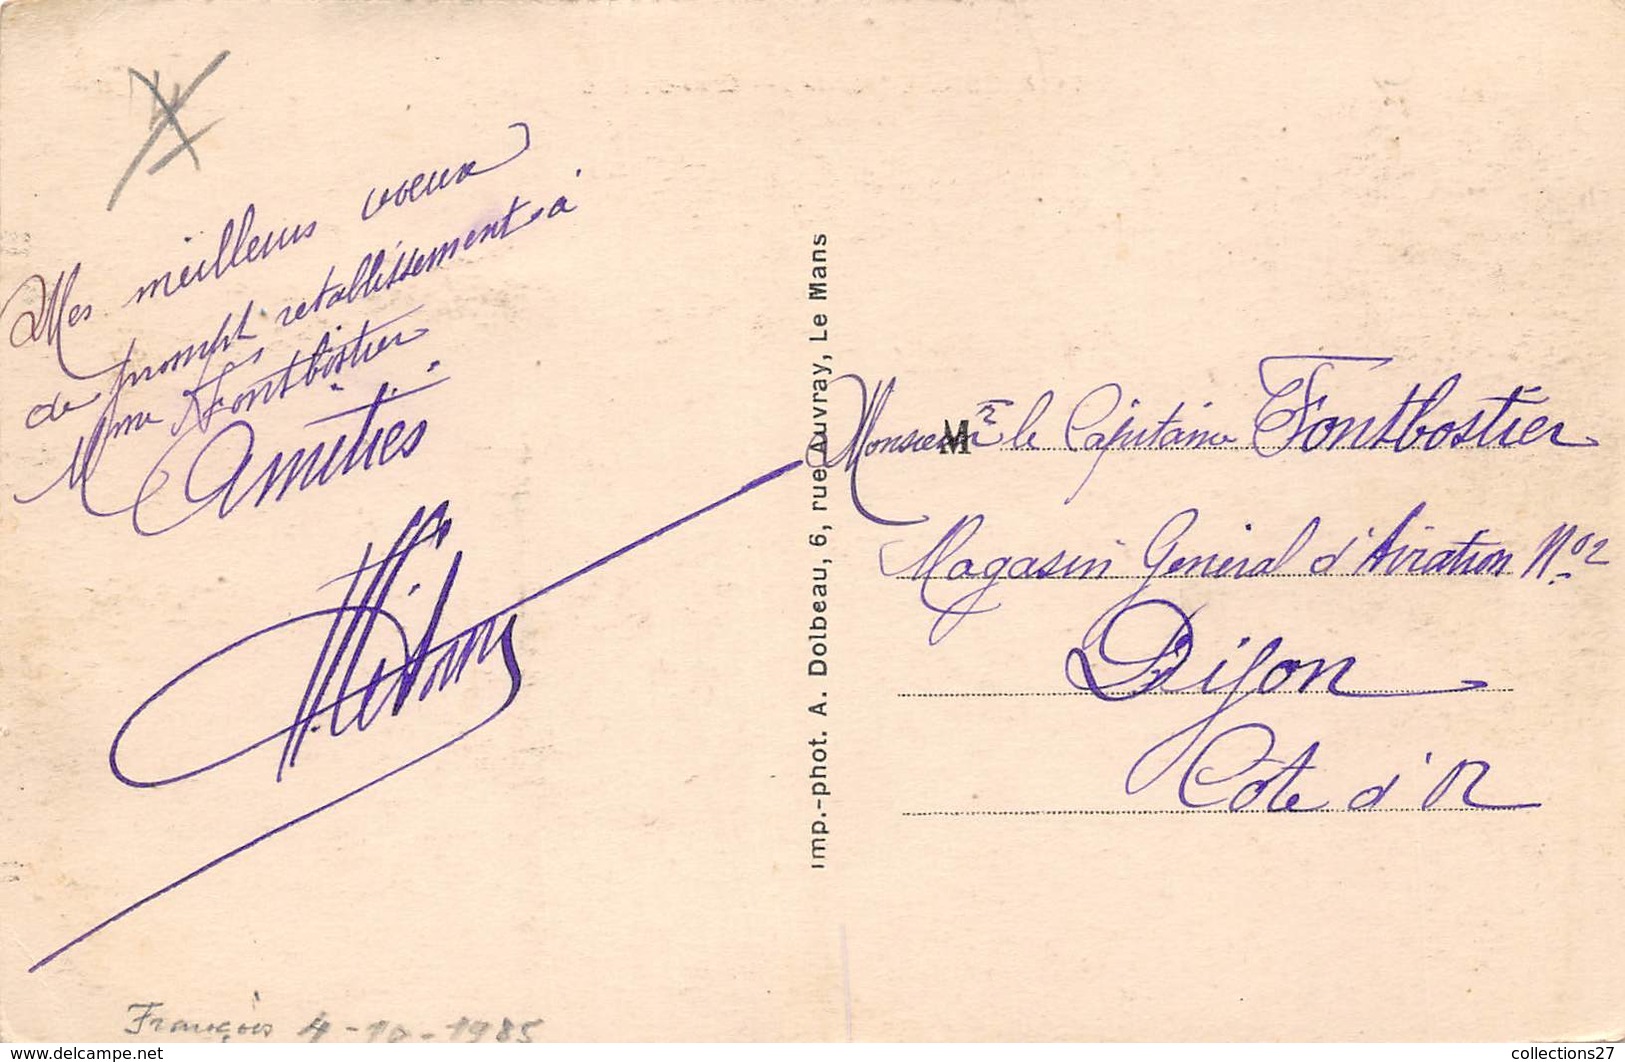 Mes meilleurs voeux
de prompt retablissement à
Mme Fontbostier
Amitiés
Imp.-phot. A. Dolbeau, 6, rue Auvray, Le Mans
M
Monsieur le Capitaine Fontbostier
Magasin Général d'Aviation N° 2
Dijon
Côte d'Or
François 4-10-1985
www.delcampe.net
collections27